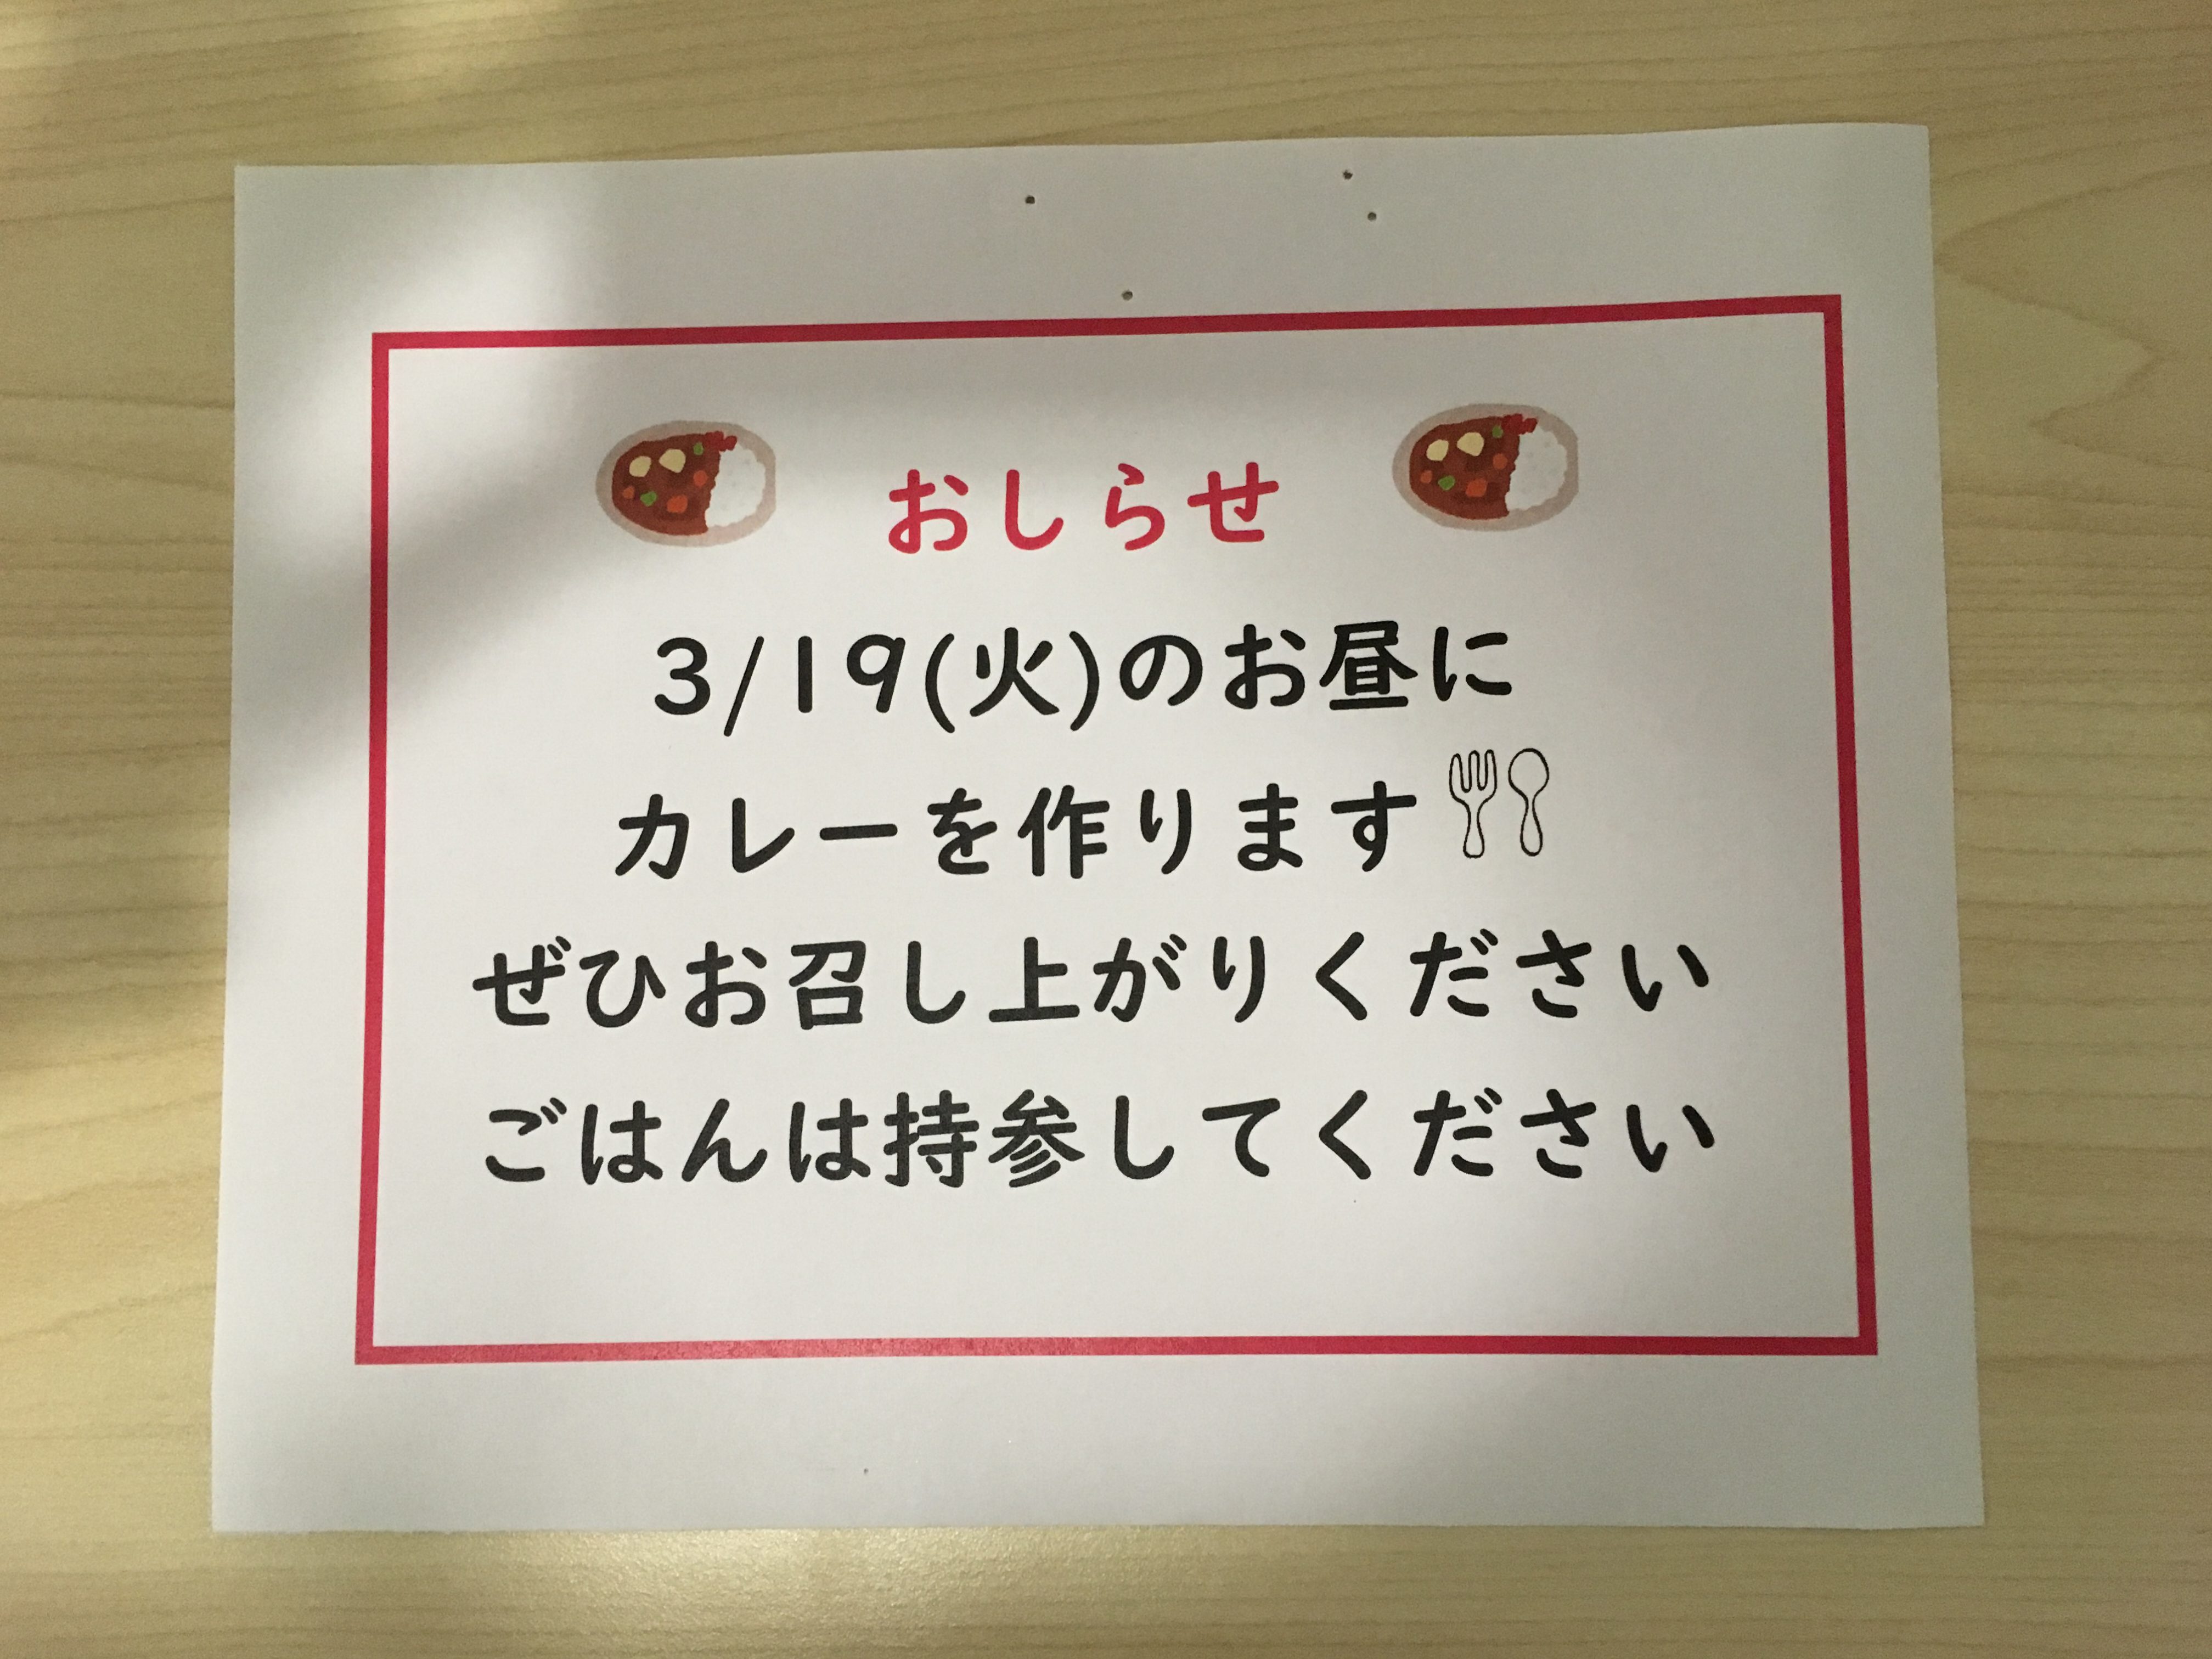 おしらせ
3/19(火)のお昼に
カレーを作ります
ぜひお召し上がりください
ごはんは持参してください